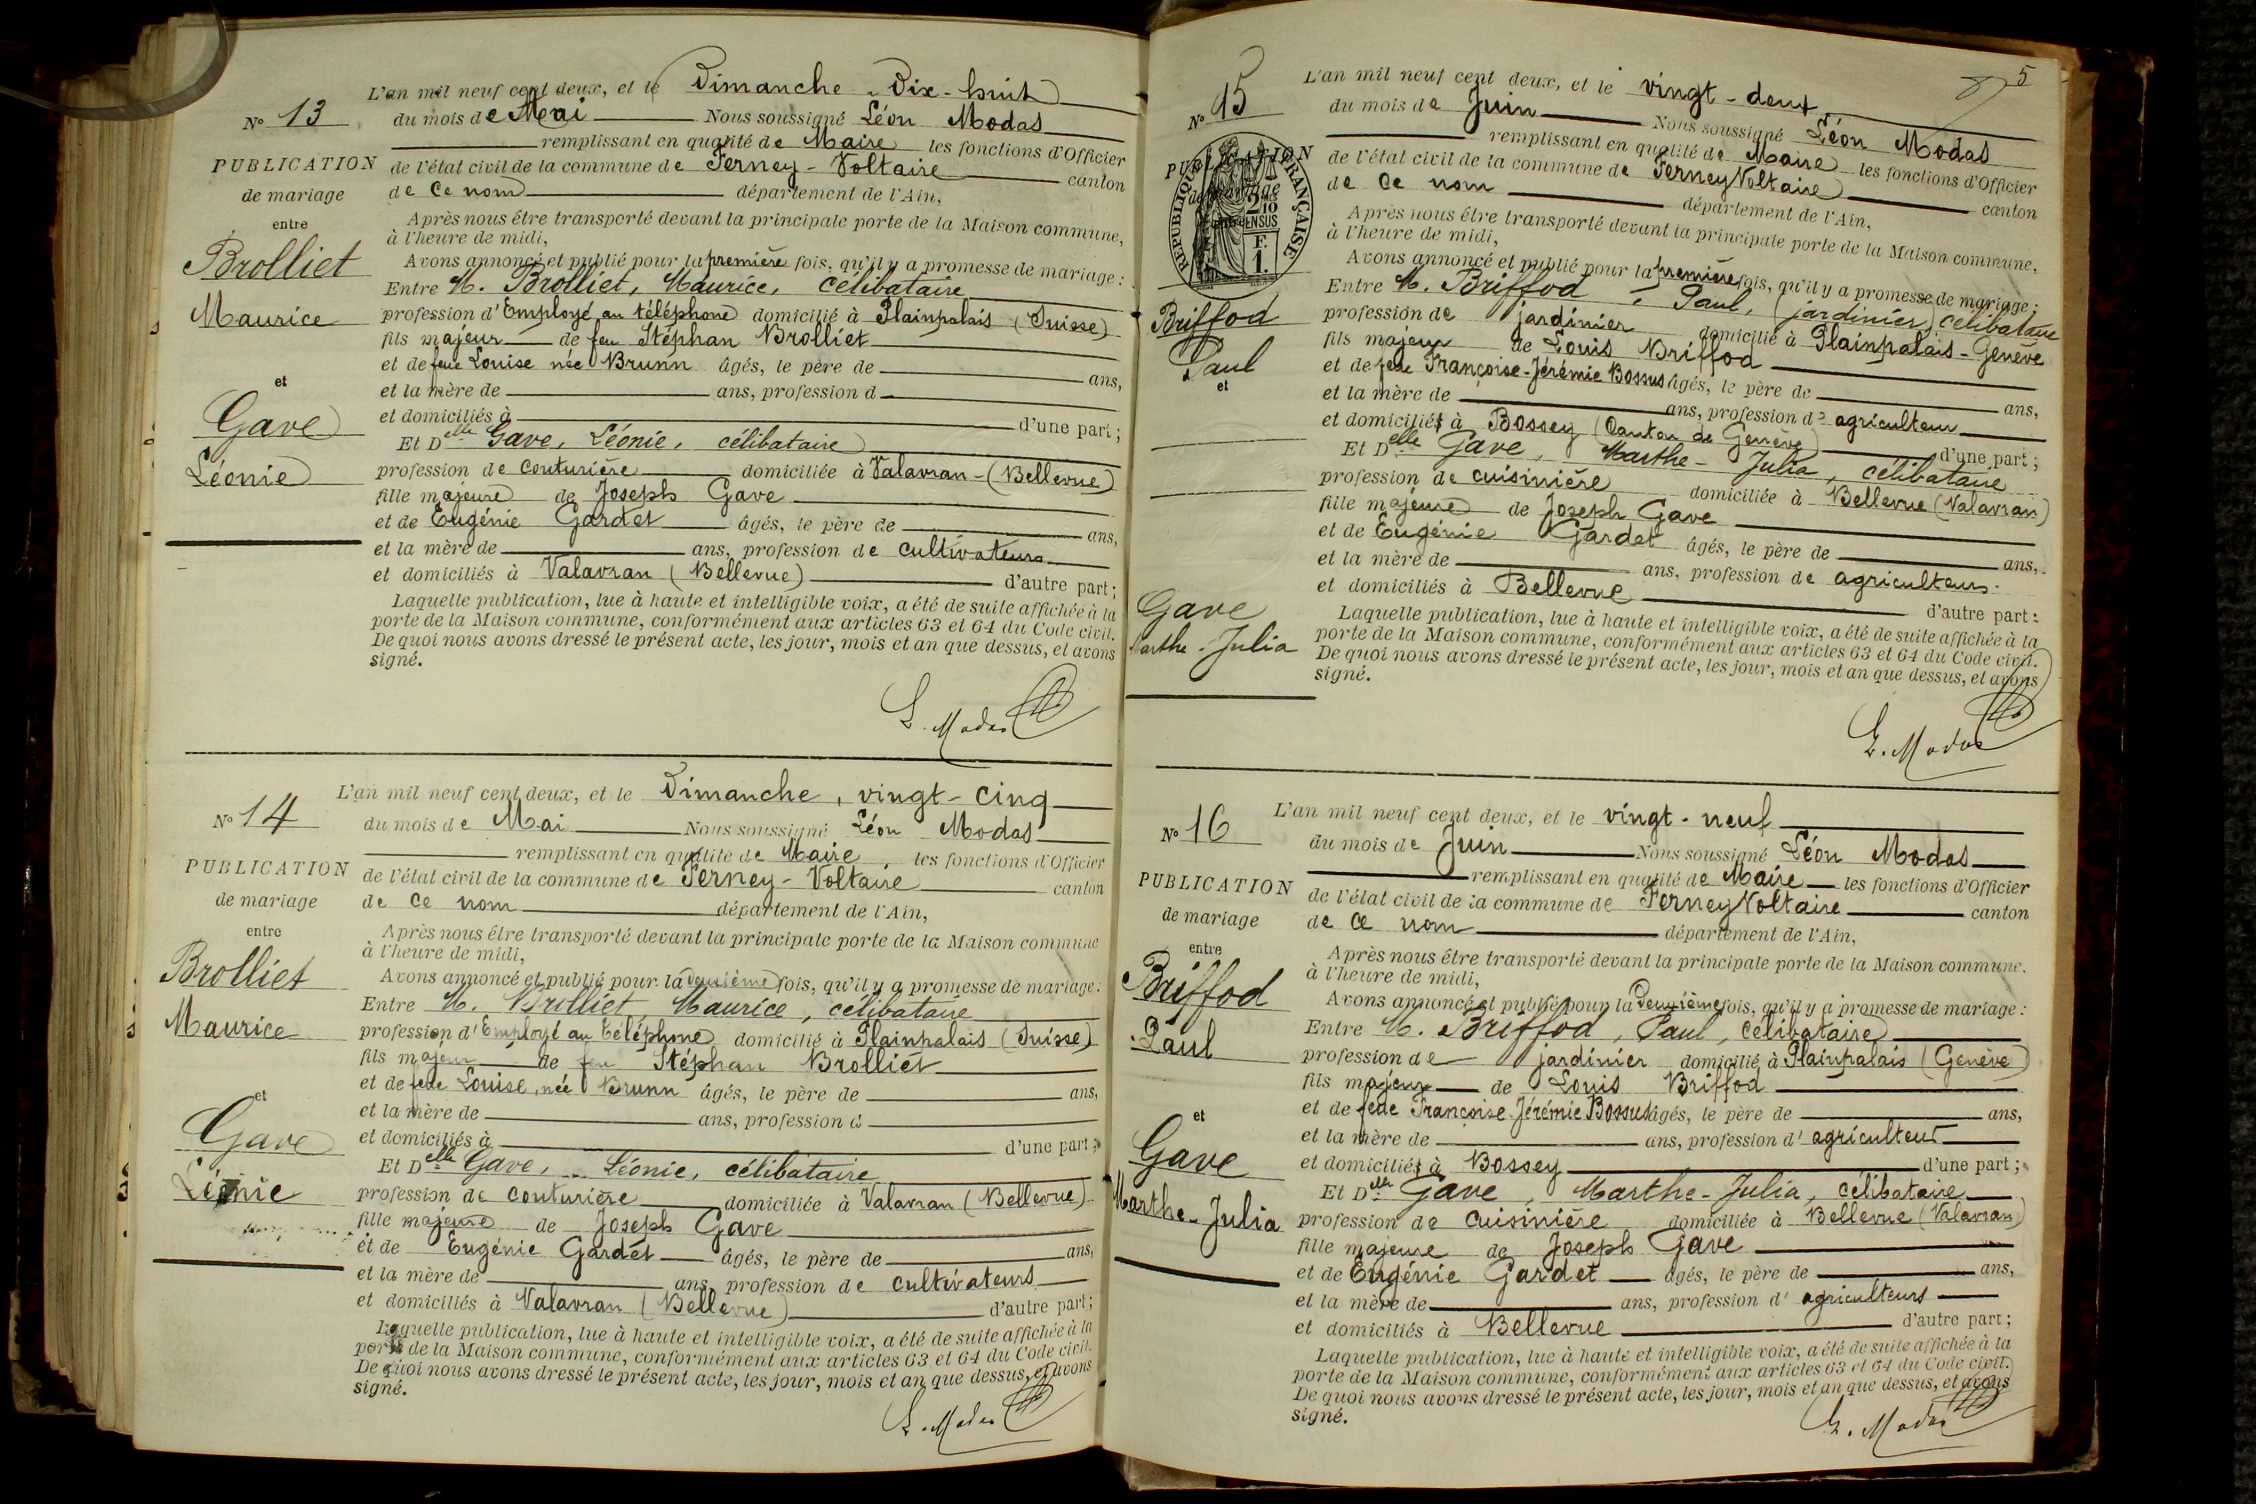 L'an mil neuf cent deux, et le Dimanche, Dix-huit
Nº 13
du mois de Mai Nous soussigné Léon Modas
remplissant en qualité de Maire les fonctions d'Officier
PUBLICATION
de l'état civil de la commune de Ferney-Voltaire canton
de mariage
de ce nom département de l'Ain,
entre
Après nous être transporté devant la principale porte de la Maison commune,
à l'heure de midi,
Brolliet
Avons annoncé et publié pour la première fois, qu'il y a promesse de mariage:
Entre M. Brolliet, Maurice, célibataire
Maurice
profession d'Employé au téléphone domicilié à Plainpalais (Suisse)
fils majeur de feu Stéphan Brolliet
et de feue Louise née Brunn âgés, le père de ans,
et
et la mère de ans, profession d
et domiciliés à d'une part;
Gave
Et Delle Gave, Léonie, célibataire
Léonie
profession de couturière domiciliée à Valavran-(Bellevue)
fille majeure de Joseph Gave
et de Eugénie Gardet âgés, le père de ans,
et la mère de ans, profession de cultivateurs
et domiciliés à Valavran (Bellevue) d'autre part;
Laquelle publication, lue à haute et intelligible voix, a été de suite affichée à la
porte de la Maison commune, conformément aux articles 63 et 64 du Code civil.
De quoi nous avons dressé le présent acte, les jour, mois et an que dessus, et avons
signé.
L. Modas
L'an mil neuf cent deux, et le Dimanche, vingt-cinq
Nº 14
du mois de Mai Nous soussigné Léon Modas
remplissant en qualité de Maire, les fonctions d'Officier
PUBLICATION
de l'état civil de la commune de Ferney-Voltaire canton
de mariage
de ce nom département de l'Ain,
entre
Après nous être transporté devant la principale porte de la Maison commune
à l'heure de midi,
Brolliet
Avons annoncé et publié pour la deuxième fois, qu'il y a promesse de mariage:
Entre M. Brolliet, Maurice, célibataire
Maurice
profession d'Employé au téléphone domicilié à Plainpalais (Suisse)
fils majeur de feu Stéphan Brolliet
et de feue Louise, née Brunn âgés, le père de ans,
et
et la mère de ans, profession d
et domiciliés à d'une part;
Gave
Et Delle Gave, Léonie, célibataire
Léonie
profession de couturière domiciliée à Valavran (Bellevue)
fille majeure de Joseph Gave
et de Eugénie Gardet âgés, le père de ans,
et la mère de ans, profession de cultivateurs
et domiciliés à Valavran (Bellevue) d'autre part;
Laquelle publication, lue à haute et intelligible voix, a été de suite affichée à la
porte de la Maison commune, conformément aux articles 63 et 64 du Code civil.
De quoi nous avons dressé le présent acte, les jour, mois et an que dessus, et avons
signé.
L. Modas
5
L'an mil neuf cent deux, et le vingt-deux
Nº 15
du mois de Juin Nous soussigné Léon Modas
remplissant en qualité de Maire les fonctions d'Officier
PUBLICATION
de l'état civil de la commune de Ferney Voltaire canton
de mariage
de ce nom département de l'Ain,
entre
RÉPUBLIQUE FRANÇAISE
2/10 EN SUS
F.
1.
Après nous être transporté devant la principale porte de la Maison commune,
à l'heure de midi,
Avons annoncé et publié pour la première fois, qu'il y a promesse de mariage:
Entre M. Briffod, Paul, (jardinier) célibataire
Briffod
profession de jardinier domicilié à Plainpalais-Genève
Paul
fils majeur de Louis Briffod
et de feue Françoise-Jérémie Bossus âgés, le père de ans,
et
et la mère de ans, profession d'agriculteur
et domiciliés à Bossey (Canton de Genève) d'une part;
Et Delle Gave, Marthe-Julia, célibataire
profession de cuisinière domiciliée à Bellevue (Valavran)
fille majeure de Joseph Gave
et de Eugénie Gardet âgés, le père de ans,
et la mère de ans, profession de agriculteurs.
et domiciliés à Bellevue d'autre part:
Gave
Marthe-Julia
Laquelle publication, lue à haute et intelligible voix, a été de suite affichée à la
porte de la Maison commune, conformément aux articles 63 et 64 du Code civil.
De quoi nous avons dressé le présent acte, les jour, mois et an que dessus, et avons
signé.
L. Modas
L'an mil neuf cent deux, et le vingt-neuf
Nº 16
du mois de Juin Nous soussigné Léon Modas
remplissant en qualité de Maire les fonctions d'Officier
PUBLICATION
de l'état civil de la commune de Ferney Voltaire canton
de mariage
de ce nom département de l'Ain,
entre
Après nous être transporté devant la principale porte de la Maison commune.
à l'heure de midi,
Briffod
Avons annoncé et publié pour la Deuxième fois, qu'il y a promesse de mariage:
Entre M. Briffod, Paul, célibataire
Paul
profession de jardinier domicilié à Plainpalais (Genève)
fils majeur de Louis Briffod
et de feue Françoise Jérémie Bossus âgés, le père de ans,
et
et la mère de ans, profession d'agriculteur
Gave
et domiciliés à Bossey d'une part;
Et Delle Gave, Marthe-Julia, célibataire
Marthe-Julia
profession de cuisinière domiciliée à Bellevue (Valavran)
fille majeure de Joseph Gave
et de Eugénie Gardet âgés, le père de ans,
et la mère de ans, profession d'agriculteurs
et domiciliés à Bellevue d'autre part;
Laquelle publication, lue à haute et intelligible voix, a été de suite affichée à la
porte de la Maison commune, conformément aux articles 63 et 64 du Code civil.
De quoi nous avons dressé le présent acte, les jour, mois et an que dessus, et avons
signé.
L. Modas